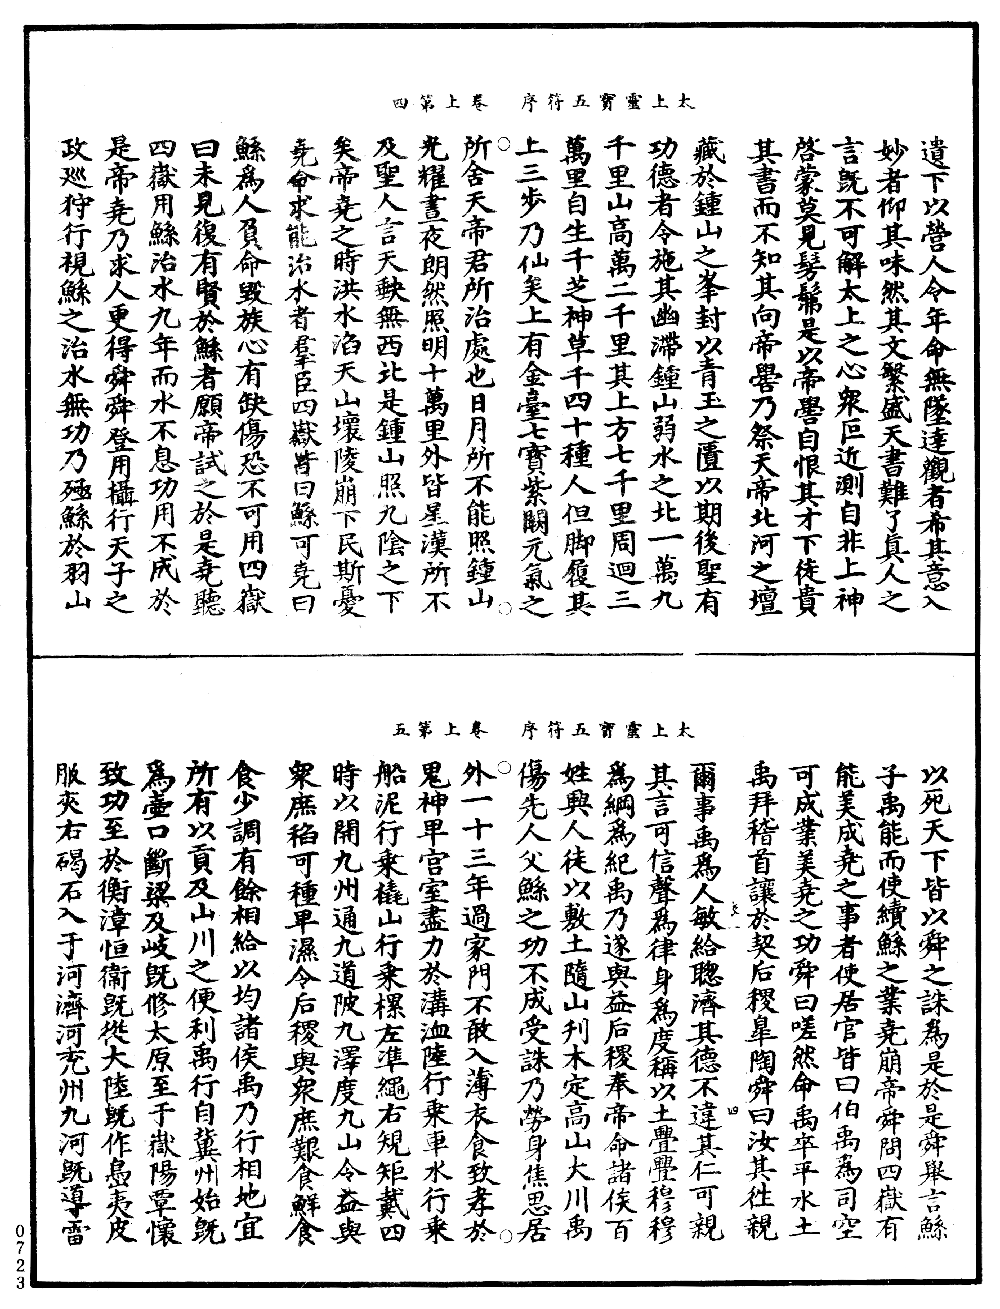 太上靈寶五符序　卷上第四
遺下以營人令年命無墜達觀者希其意入
妙者仰其味然其文繁盛天書難了真人之
言既不可解太上之心衆叵近測自非上神
啓蒙莫見髣髴是以帝嚳自恨其才下徒貴
其書而不知其向帝嚳乃祭天帝北河之壇
藏於鍾山之峯封以青玉之匱以期後聖有
功德者令施其幽滯鍾山弱水之北一萬九
千里山高萬二千里其上方七千里周迴三
萬里自生千芝神草千四十種人但脚履其
上三步乃仙矣上有金臺七寶紫闕元氣之
所舍天帝君所治處也日月所不能照鍾山
光耀晝夜朗然照明十萬里外皆星漢所不
及聖人言天缺無西北是鍾山照九陰之下
矣帝堯之時洪水滔天山壞陵崩下民斯憂
堯命求能治水者羣臣四嶽皆曰鯀可堯曰
鯀爲人負命毀族心有缺傷恐不可用四嶽
曰未見復有賢於鯀者願帝試之於是堯聽
四嶽用鯀治水九年而水不息功用不成於
是帝堯乃求人更得舜舜登用攝行天子之
政巡狩行視鯀之治水無功乃殛鯀於羽山
太上靈寶五符序　卷上第五
以死天下皆以舜之誅爲是於是舜舉言鯀
子禹能而使續鯀之業堯崩帝舜問四嶽有
能美成堯之事者使居官皆曰伯禹爲司空
可成業美堯之功舜曰嗟然命禹卒平水土
禹拜稽首讓於契后稷臯陶舜曰汝其往親
爾事禹爲人敏給聰濟其德不違其仁可親
其言可信聲爲律身爲度稱以土亹亹穆穆
爲綱爲紀禹乃遂與益后稷奉帝命諸侯百
姓興人徒以敷土隨山刋木定高山大川禹
傷先人父鯀之功不成受誅乃勞身焦思居
外一十三年過家門不敢入薄衣食致孝於
鬼神卑宮室盡力於溝洫陸行乘車水行乘
船泥行乘橇山行乘樏左准繩右規矩戴四
時以開九州通九道陂九澤度九山令益與
衆庶稻可種卑濕令后稷與衆庶艱食鮮食
食少調有餘相給以均諸侯禹乃行相地宜
所有以貢及山川之便利禹行自冀州始旣
爲壺口斷梁及岐旣修太原至于嶽陽覃懷
致功至於衡漳恒衛旣從大陸旣作島夷皮
服夾右碣石入于河濟河兗州九河旣導雷
四
0723